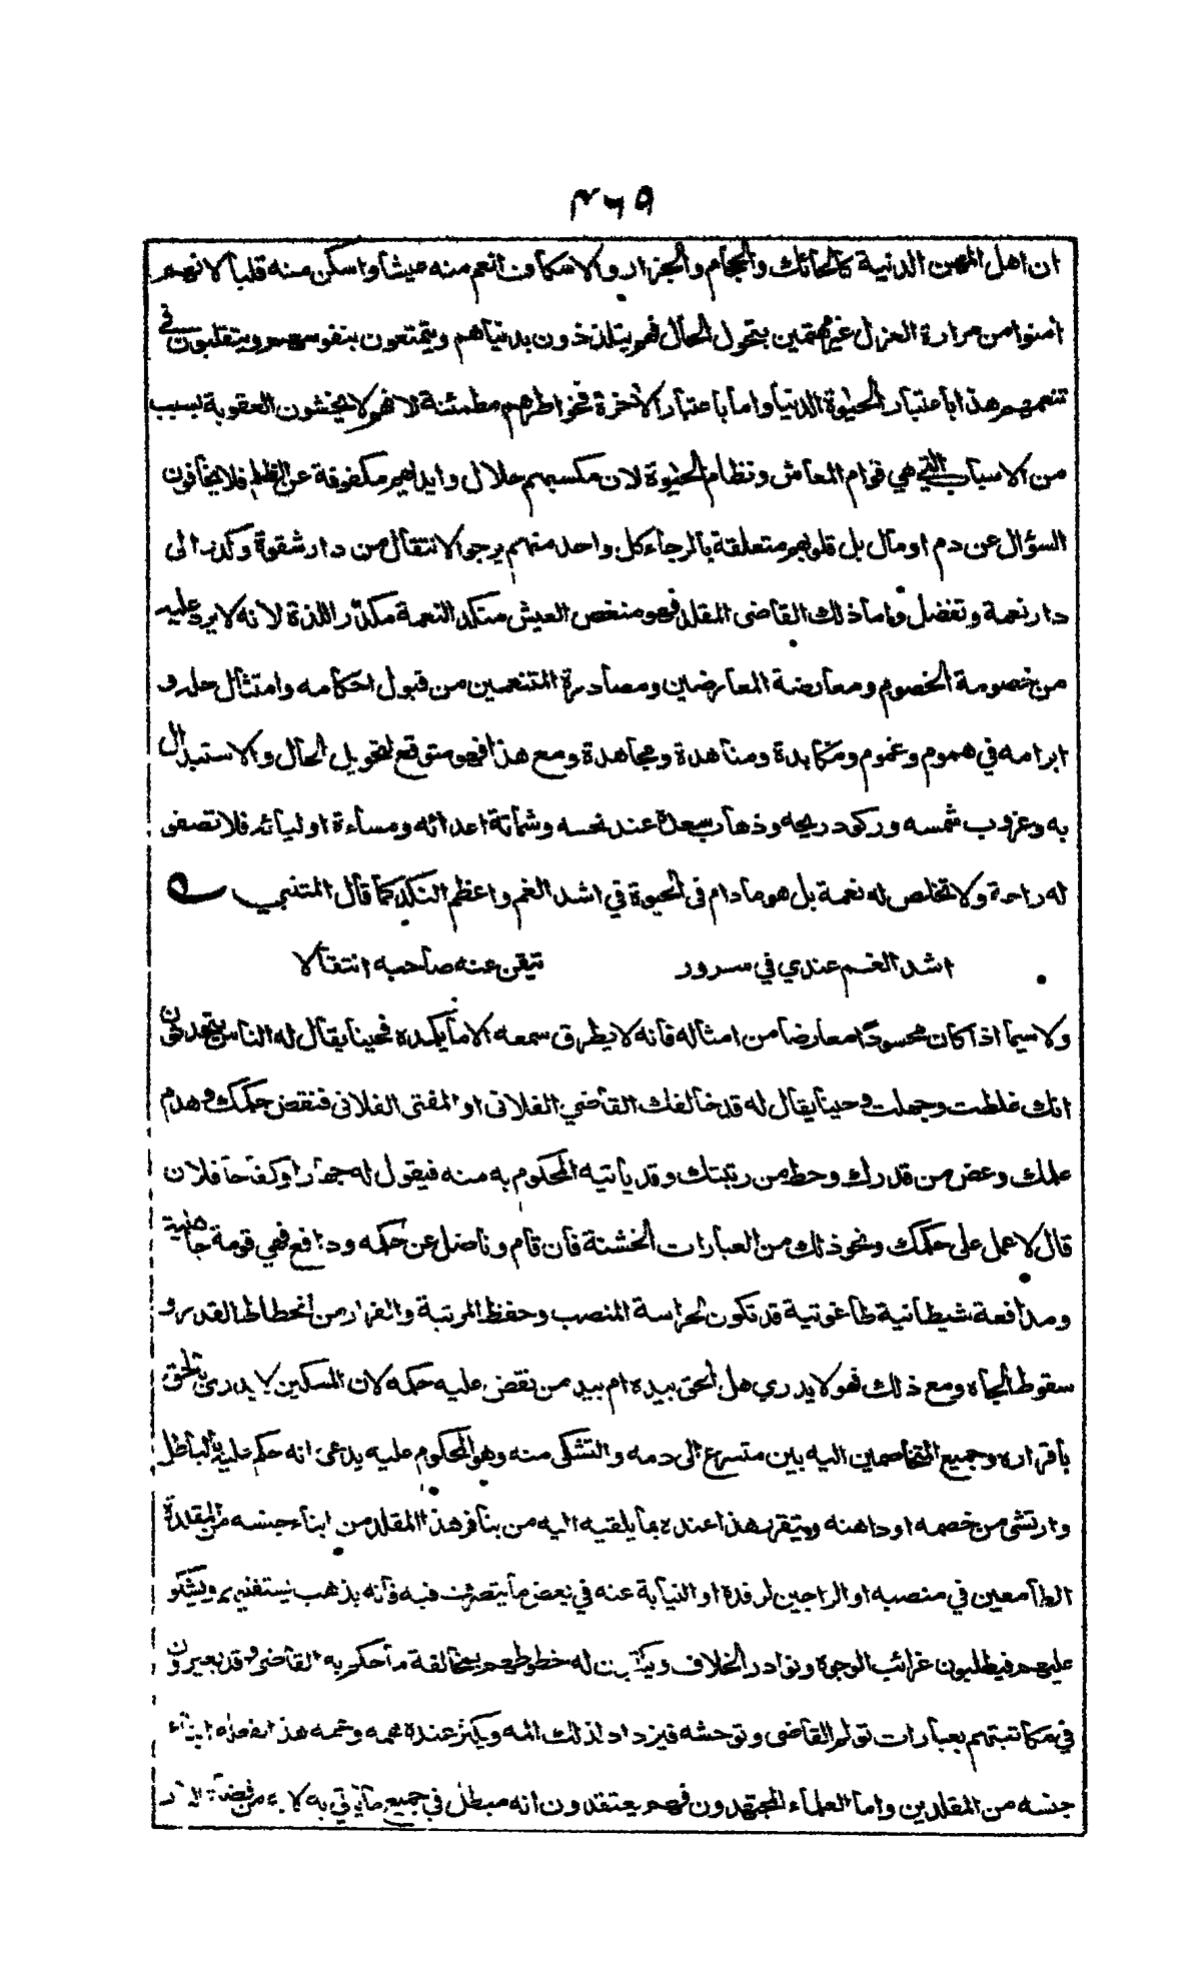 ٤٦٥
ان اهل المهن الدنية كالحائك والحجام والجزار والاسكاف انعم منه عيشا واسكن منه قلبا لانهم
امنوا من مرارة العزل غير مهتمين بتحول الحال فهم يتلذذون بدنياهم ويتمتعون بنفوسهم ويتقلبون في
تنعمهم هذا باعتبار الحيوة الدنيا واما باعتبار الاخرة فخواطرهم مطمئنة لانهم لا يخشون العقوبة بسبب
من الاسباب التي هي قوام المعاش ونظام الحيوة لان مكسبهم حلال وايديهم مكفوفة عن الظلم فلا يخافون
السؤال عن دم او مال بل قلوبهم متعلقة بالرجاء كل واحد منهم يرجو الانتقال من دار شقوة وكدر الى
دار نعمة وتفضل واما ذلك القاضى المقلد فهو منغص العيش منكد النعمة مكدر اللذة لانه لا يرد عليه
من خصومة الخصوم ومعارضة المعارضين ومصادرة المتنعمين من قبول احكامه وامتثال حله و
ابرامه في هموم وغموم ومكابدة ومناهدة ومجاهدة ومع هذا فهو متوقع لتحويل الحال والاستبدال
به وغروب شمسه وركود ريحه وذهاب سعده عند نحسه وشماتة اعدائه ومساءة اوليائه فلا تصفو
له راحة ولا تخلص له نعمة بل هو ما دام فى الحيوة في اشد الغم واعظم النكد كما قال المتنبي
اشد الغم عندي في سرور تيقن عنه صاحبه انتقالا
ولا سيما اذا كان محسودا معارضا من امثاله فانه لا يطرق سمعه الا ما يكمده فحينا يقال له الناس يتحدثون
انك غلطت وجهلت وحينا يقال له قد خالفك القاضي الفلانى او المفتى الفلانى فنقض حكمك وهدم
علمك وغض من قدرك وحط من رتبتك وقد ياتيه المحكوم به منه فيقول له جهارا وكفاحا فلان
قال لا عمل على حكمك ونحو ذلك من العبارات الخشنة فان قام وناضل عن حكمه ودافع فهي قومة جاهلية
ومدافعة شيطانية طاغوتية قد تكون لحراسة المنصب وحفظ المرتبة والفرار من انحطاط القدر و
سقوط الجاه ومع ذلك فهو لا يدري هل الحق بيده ام بيد من نقض عليه حكمه لان المسكين لا يدري بالحق
باقراره وجميع المتخاصمين اليه بين متسرع الى ذمه والتشكى منه وهو المحكوم عليه يدعى انه حكم عليه بالباطل
وارتشى من خصمه او داهنه ويتقرر هذا عنده بما يلقيه اليه من ينافر هذا المقلد من ابناء جنسه من المقلدة
الطامعين في منصبه او الراجين لرفدة او النيابة عنه في بعض ما يتصرف فيه فانه يذهب يستفتيهم ويشكو
عليهم فيطلبون غرائب الوجوه ونوادر الخلاف ويكتبون له خطوطهم بمخالفة ما حكم به القاضى وقد يعبرون
في مكاتبتهم بعبارات تولم القاضى وتوحشه فيزداد لذلك المه ويكثر عنده همه وغمه هذا يفعله ابناء
جنسه من المقلدين واما العلماء المجتهدون فهم يعتقدون انه مبطل في جميع ما ياتي به لانه من قضاة النار